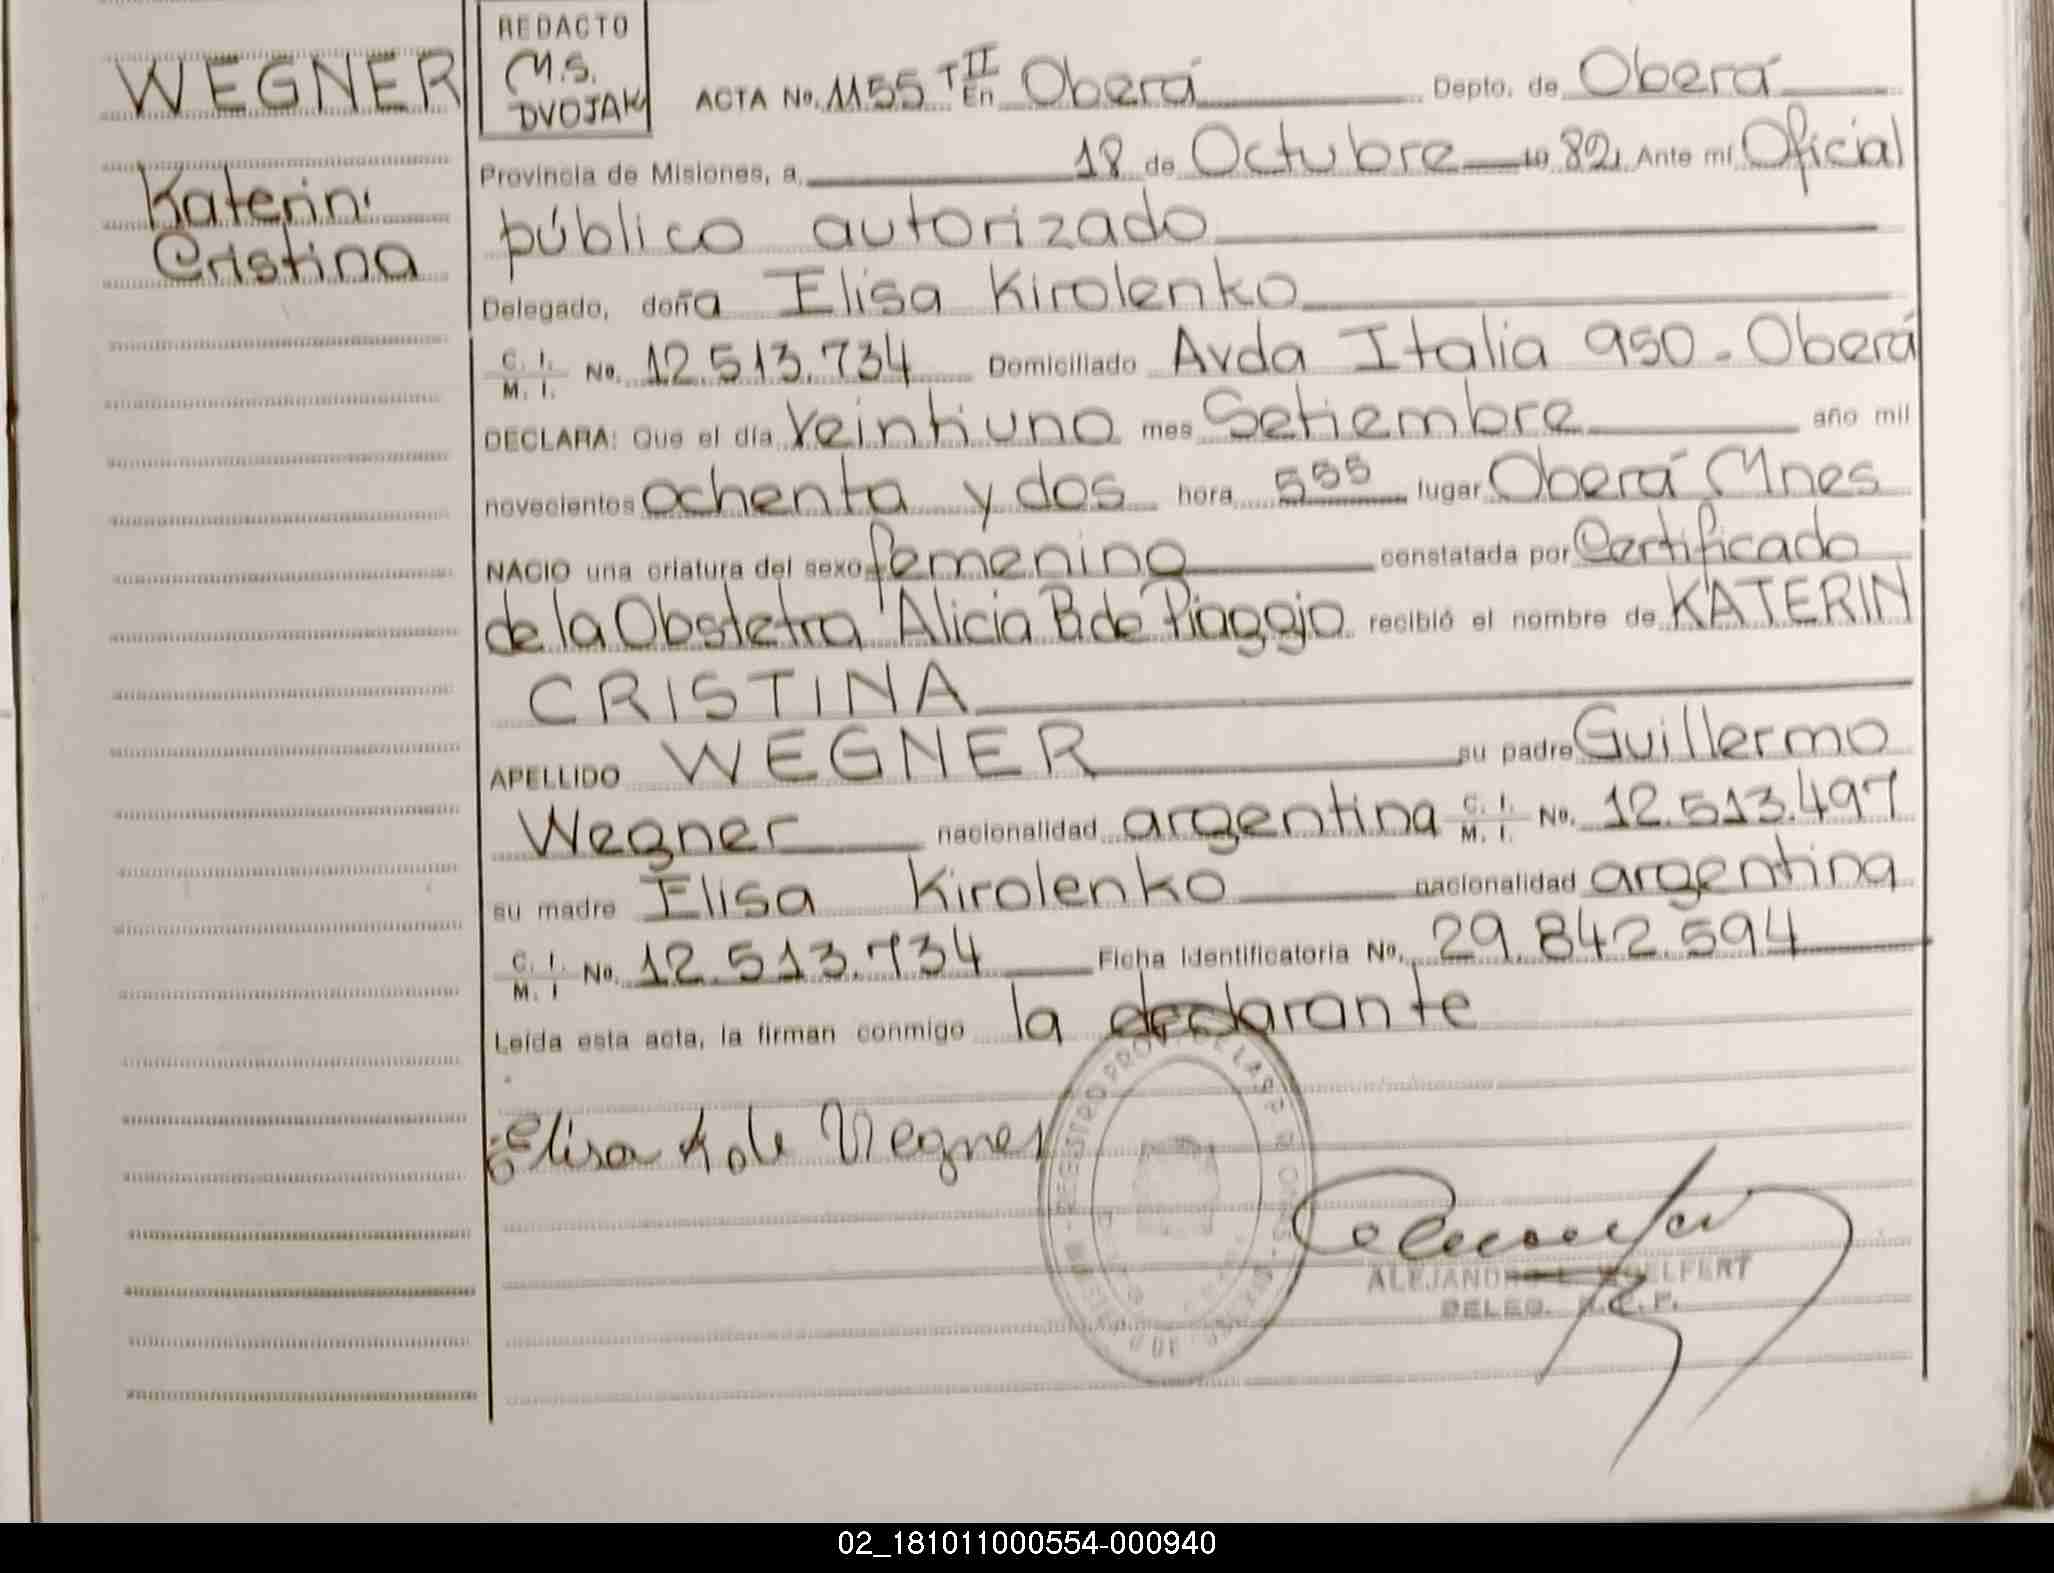 WEGNER
Katerin
Cristina
REDACTO
M.S.
DVOJAK
ACTA No. 1155 T II En Oberá Depto. de Oberá
Provincia de Misiones, a 18 de Octubre 19 82, Ante mí Oficial
público autorizado
Delegado, doña Elisa Kirolenko
C. I. M. I. No. 12.513.734 Domiciliado Avda Italia 950 - Oberá
DECLARA: Que el día Veintiuno mes Setiembre año mil
novecientos ochenta y dos hora 5 55 lugar Oberá Mnes
NACIO una criatura del sexo femenino constatada por Certificado
de la Obstetra Alicia B. de Piaggio recibió el nombre de KATERIN
CRISTINA
APELLIDO WEGNER su padre Guillermo
Wegner nacionalidad argentina C. I. M. I. No. 12.513.497
su madre Elisa Kirolenko nacionalidad argentina
C. I. M. I No. 12.513.734 Ficha Identificatoria No. 29.842.594
Leída esta acta, la firman conmigo la declarante
Elisa K de Wegner
REGISTRO PROV. DE LAS P
ALEJANDRO
DELEG. R.C.P.
02_181011000554-000940